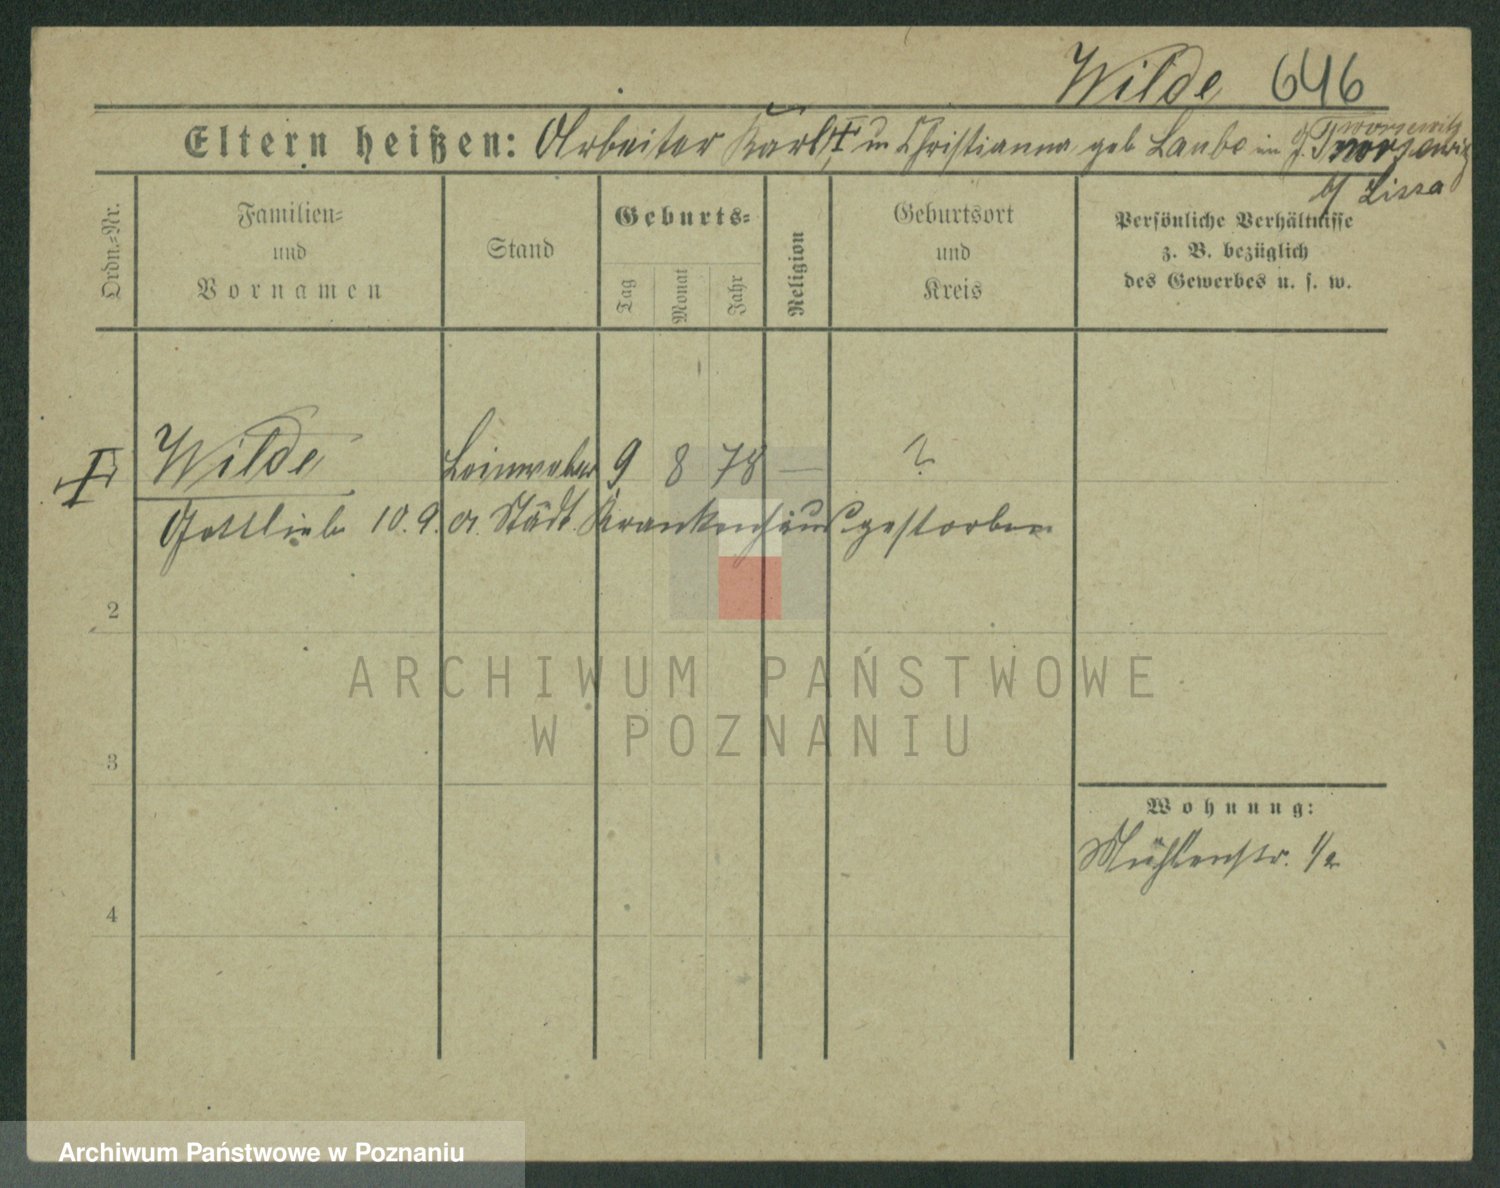 Wilde 646
Eltern heißen: Arbeiter Karl u Christianna geb Laube in
b/ Lissa
Ordn.-Nr.
Familien-
und
Vornamen
Stand
Geburts-
Tag
Monat
Jahr
Religion
Geburtsort
und
Kreis
Persönliche Verhältnisse
z. B. bezüglich
des Gewerbes u. s. w.
Wilde Leinweber 9 8 78 — ?
Gottlieb 10. 9. a. Städt. Krankenhaus gestorben
2
3
4
Wohnung:
Mühlenstr. 1/2
ARCHIWUM PAŃSTWOWE
W POZNANIU
Archiwum Państwowe w Poznaniu